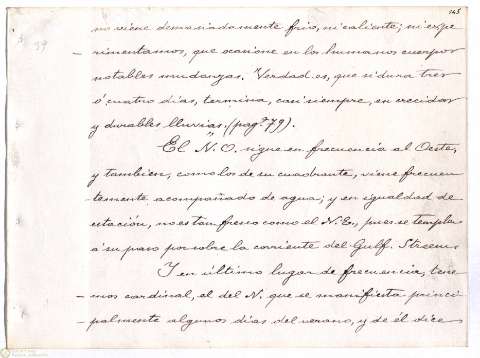 145
39
no viene demasiadamente frio, ni caliente; ni expe
- rimentamos, que ocasione en los humanos cuerpos
notables mudanzas. Verdad es, que si dura tres
ó cuatro dias, termina, casi siempre, en crecidas
y durables lluvias. (pagª 79).
El N.O. sigue en frecuencia al Oeste,
y tambien, como los de su cuadrante, viene frecuen
temente acompañado de agua; y en igualdad de
estación, no es tan fresco como el N.E., pues se templa
á su paso por sobre la corriente del Gulf. Stream.
Y en último lugar de frecuencia, tene
- mos cardinal, el del N. que se manifiesta princi
- palmente algunos dias del verano, y de él dice